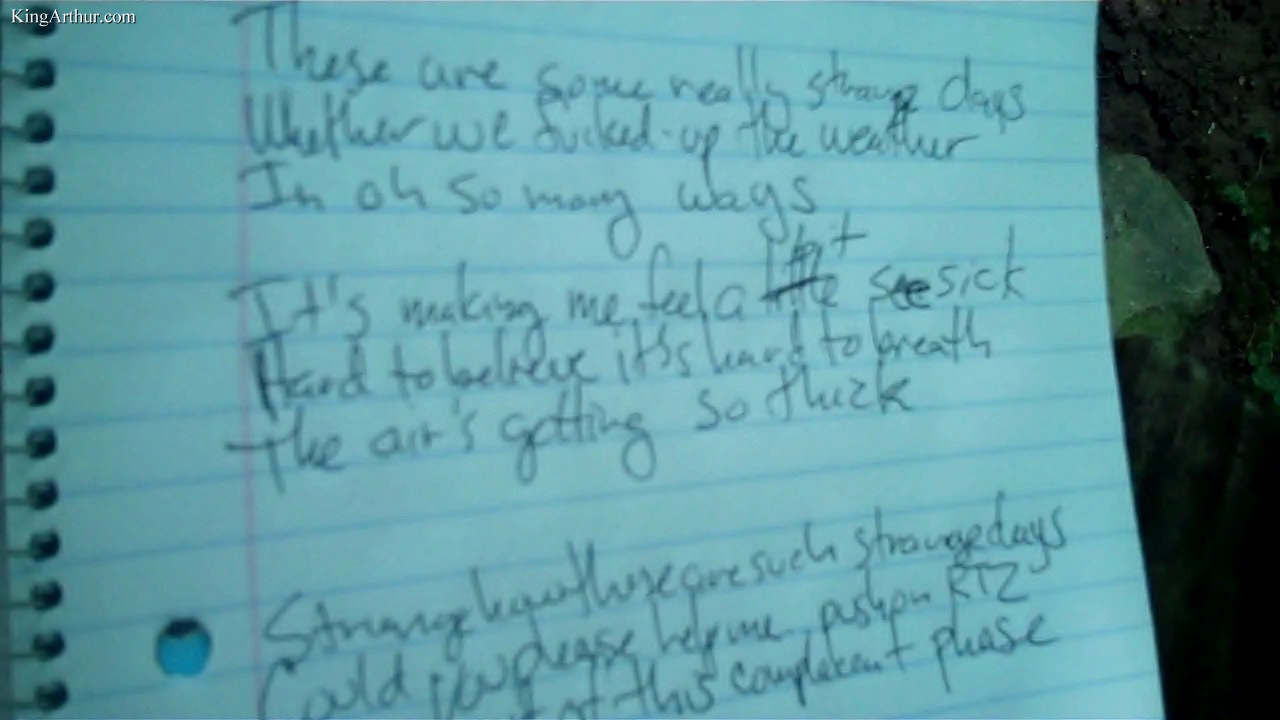 KingArthur.com
These are some really strange days
Whether we fucked-up the weather
In oh so many ways
bit
It's making me feel a little seesick
Hard to believe it's hard to breath
the air's getting so thick
these are such strange days
Could you please help me push on RTZ
of this complacent phase